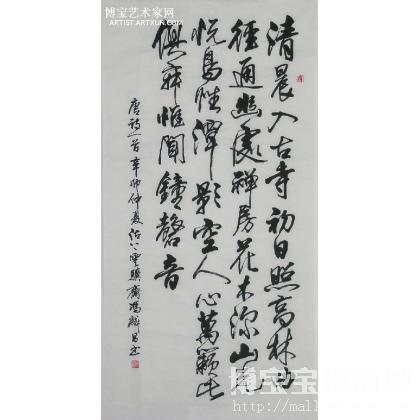 博宝艺术家网
ARTIST.ARTXUN.COM
清晨入古寺初日照高林曲
徑通幽處禪房花木深山光
悅鳥性潭影空人心萬籟此
俱寂惟聞鐘磬音
唐詩一首辛卯仲夏
http://mall